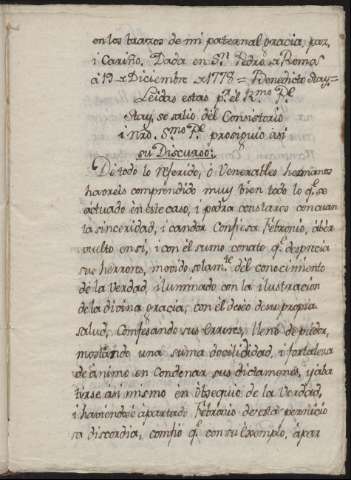 en los brazos de mi paternal gracia, paz,
i Cariño. Dada en Sn. Pedro de Roma
á 19 de Diciembre de 1778 = Benedicto Stay =
Leidas estas pr. el Rmo. Pe.
Stay, se salio del Consistorio
i nro. Smo. Pe. prosiguio asi
su Discurso:
De todo lo referido, ó Venerables hermanos
havreis comprendido muy bien todo lo qe. se
actuado en este caso, i podra constaros con cuan
ta sinceridad, i candor confiesa Febronio, aber
vuelto en sí, i con el sumo conato qe. desprecia
sus herrores, movido solamte. del conocimiento
de la Verdad, iluminado con la ilustracion
de la divina gracia, con el deseo de su propia
salud, Confesando sus Errores, lleno de pudor,
mostrando una suma docilidad, i fortaleza
de ánimo en Condenar sus dictamenes, y aba
tirse asi mismo en obsequio de la Verdad,
i haviendose apartado Febronio de esta pernicio
sa discordia, confio qe. con su exemplo, apar